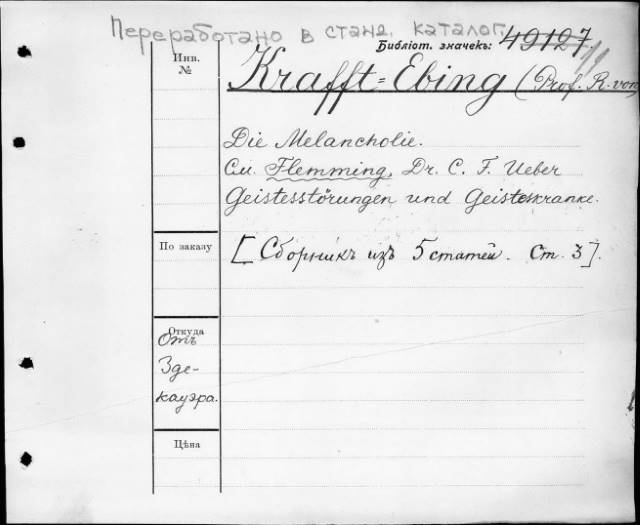 Переработано в станд. каталог.
Библіот. значекъ: 49127.
Инв.
№
Krafft=Ebing (Prof. R. von
Die Melancholie.
См. Flemming, Dr. C. F. Ueber
Geistesstörungen und Geisteskranke.
По заказу
[Сборникъ изъ 5 статей. Ст. 3].
Откуда
Отъ
Зде-
кауэра.
Цѣна